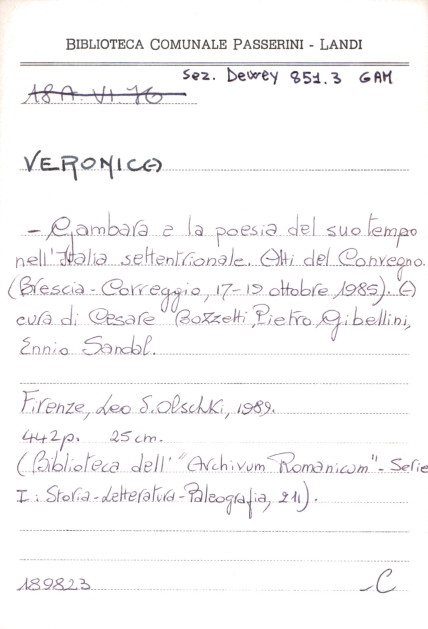 BIBLIOTECA COMUNALE PASSERINI - LANDI
Sez. Dewey 851.3 GAM
18 A. VI. 76
VERONICA
- Gambara e la poesia del suo tempo
nell'Italia settentrionale. Atti del Convegno.
(Brescia - Correggio, 17-19 ottobre 1985). A
cura di Cesare Bozzetti, Pietro Gibellini,
Ennio Sandal.
Firenze, Leo S. Olschki, 1989.
442p. 25 cm.
(Biblioteca dell' "Archivum Romanicum" - Serie
I: Storia - Letteratura - Paleografia, 211).
189823
C